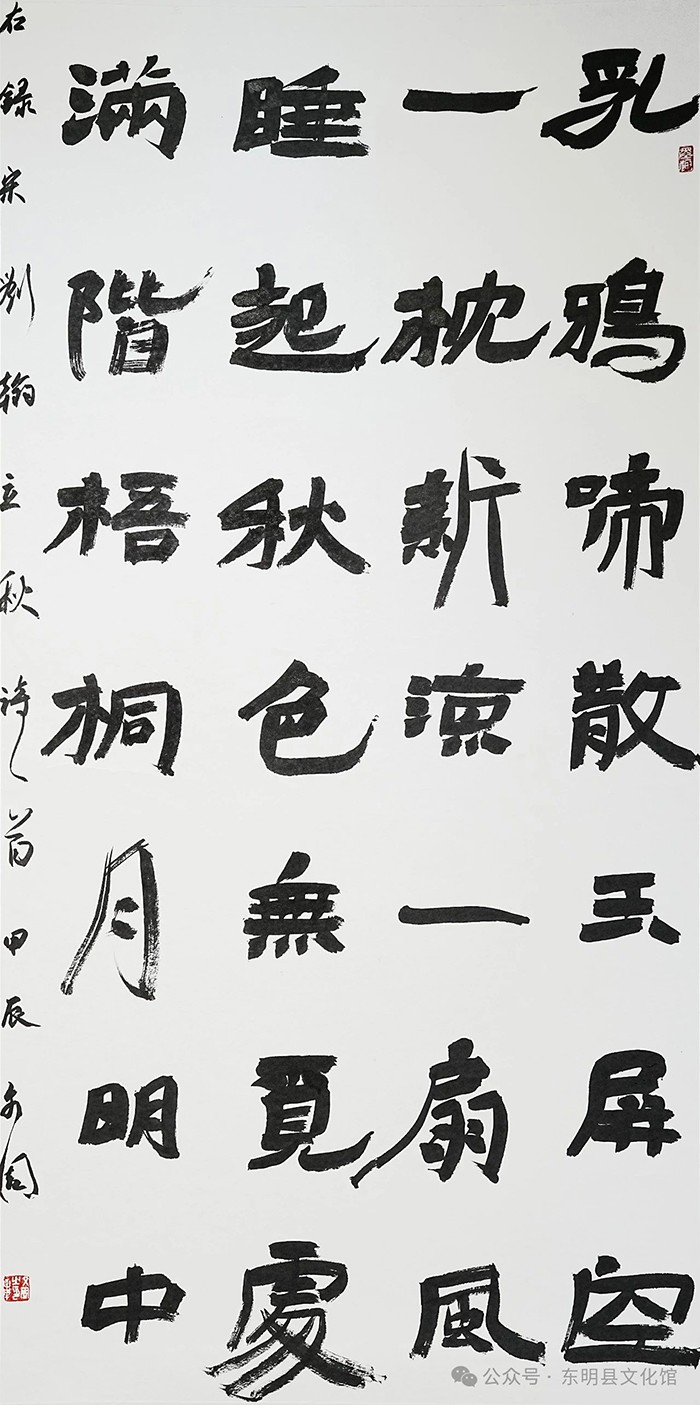 乳鴉啼散玉屏空
一枕新涼一扇風
睡起秋色無覓處
滿階梧桐月明中
右錄宋劉翰立秋詩一首甲辰
公众号·东明县文化馆